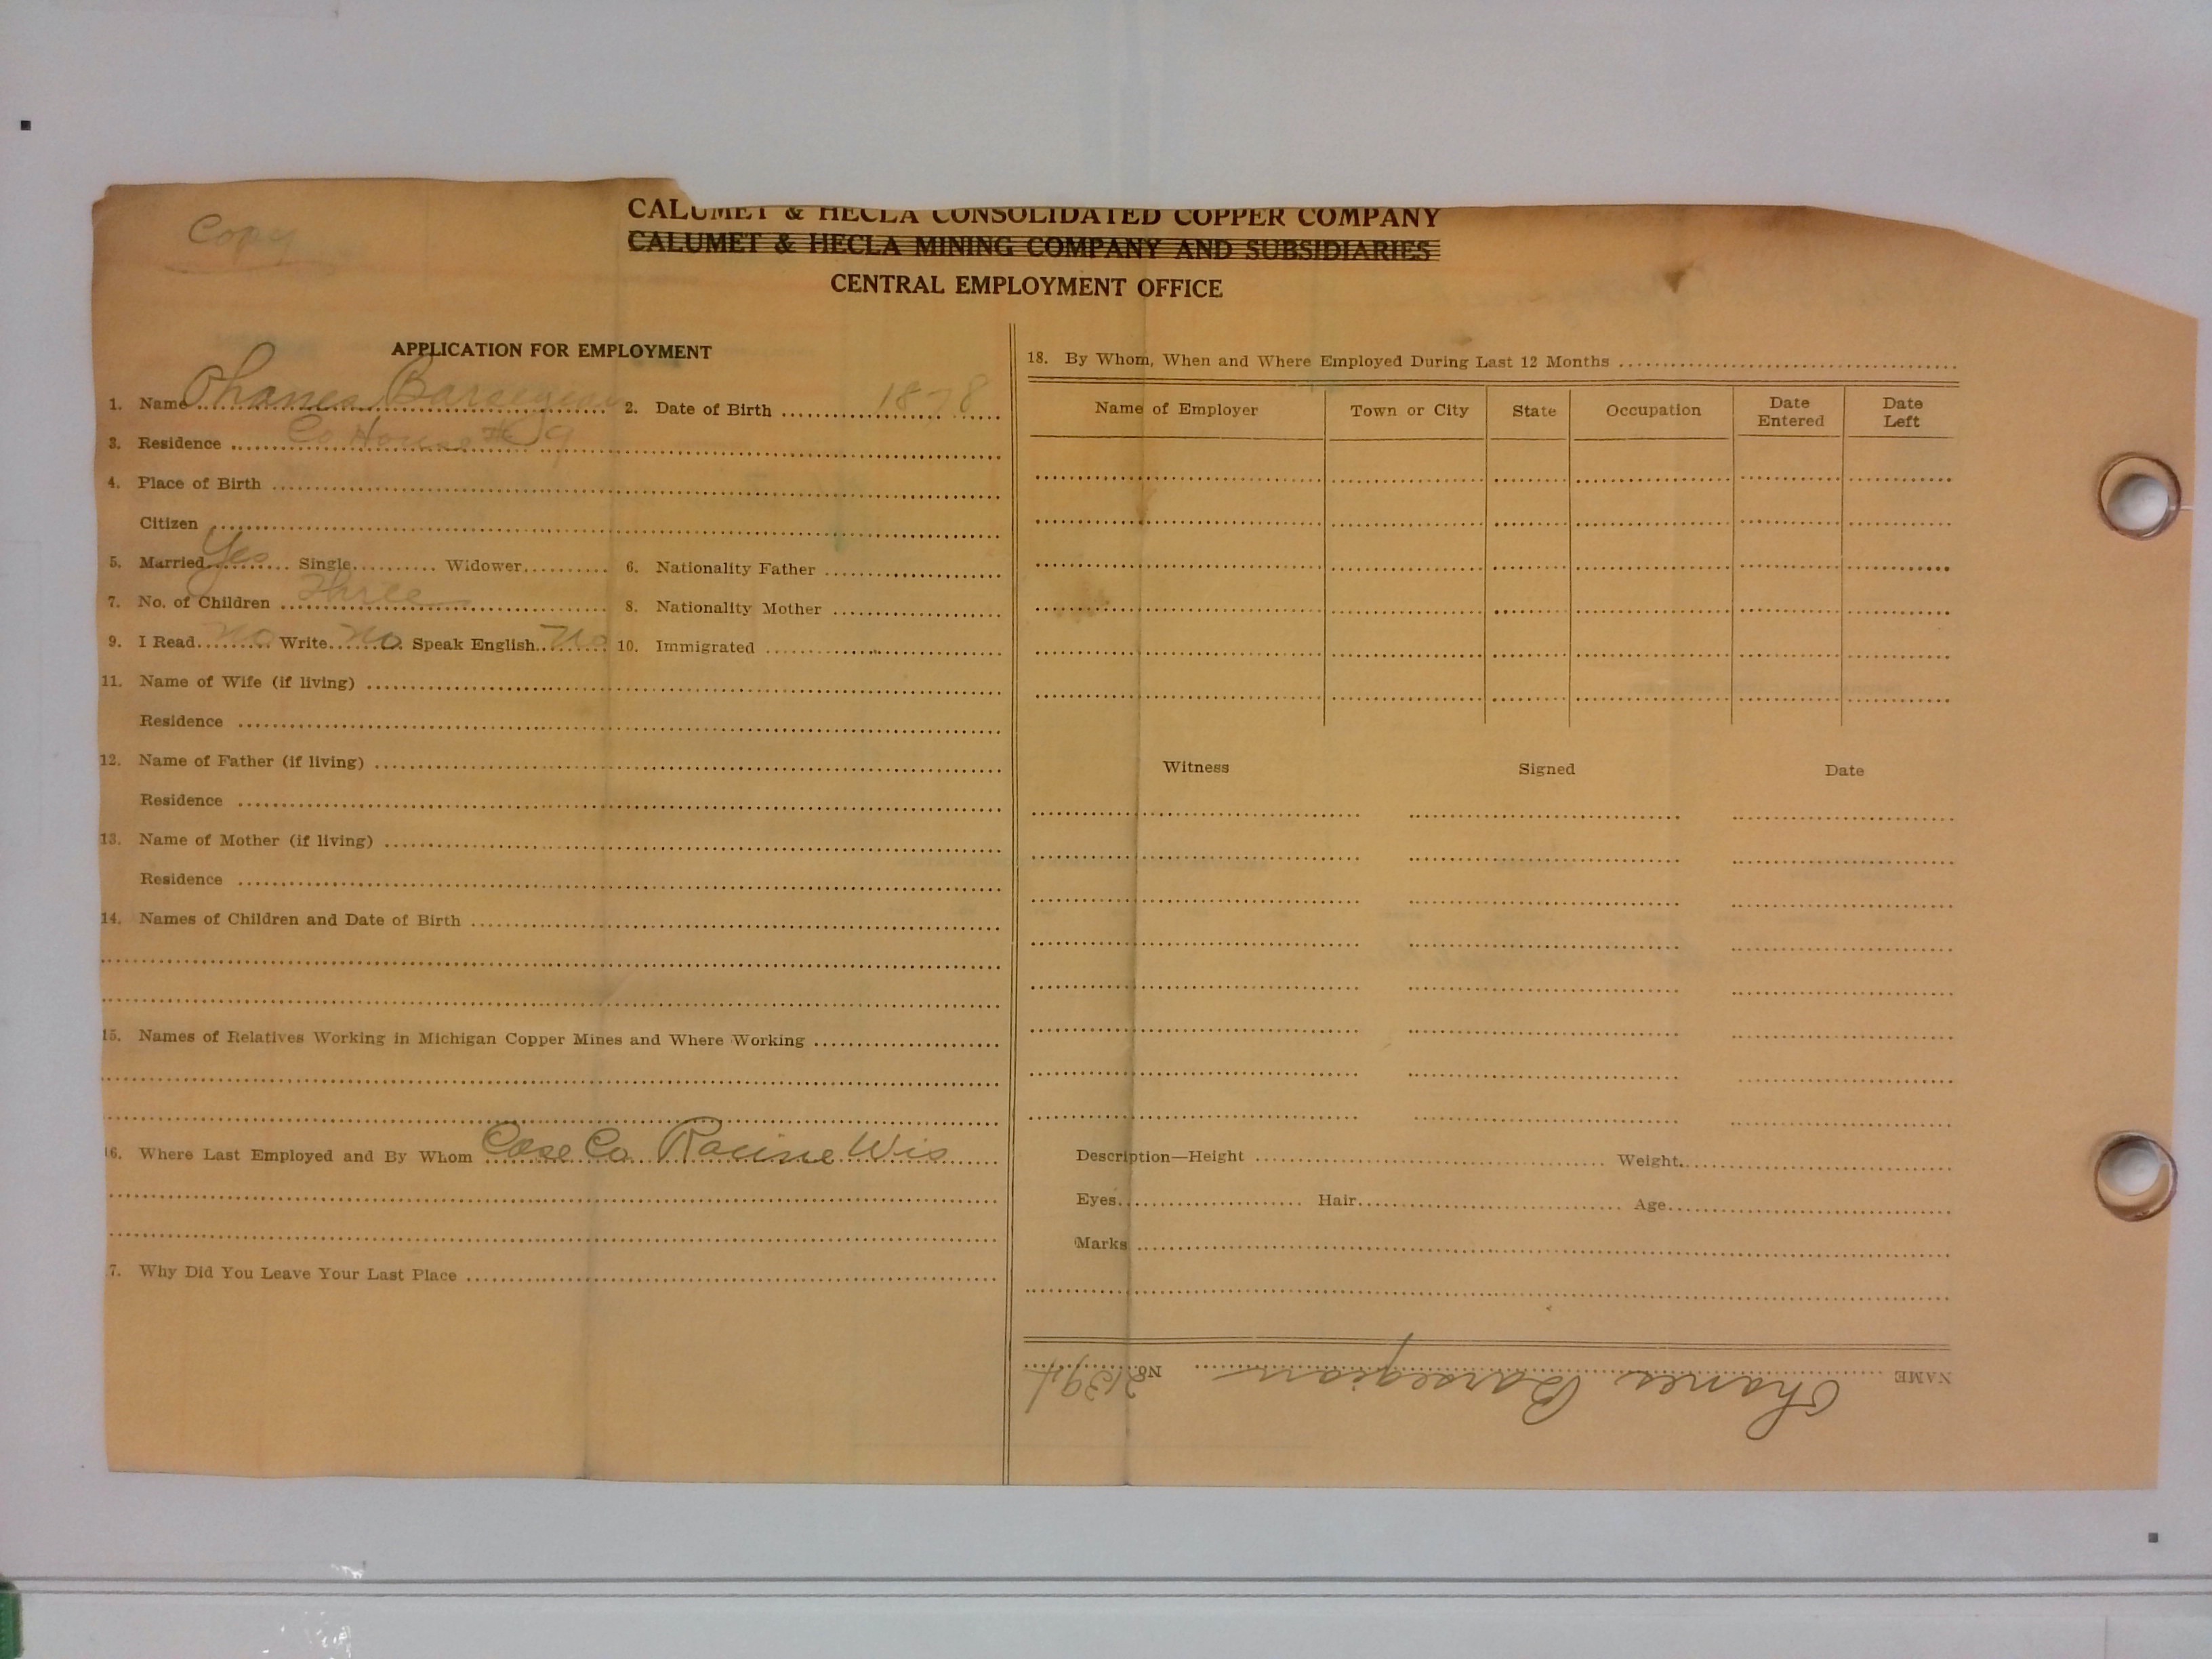 Copy
CALUMET & HECLA CONSOLIDATED COPPER COMPANY
CALUMET & HECLA MINING COMPANY AND SUBSIDIARIES
CENTRAL EMPLOYMENT OFFICE
APPLICATION FOR EMPLOYMENT
1. Name Ohanes Barsegian 2. Date of Birth 1878
3. Residence Co House # 9
4. Place of Birth
Citizen
5. Married Yes Single Widower 6. Nationality Father
7. No. of Children Three 8. Nationality Mother
9. I Read No Write No Speak English No 10. Immigrated
11. Name of Wife (if living)
Residence
12. Name of Father (if living)
Residence
13. Name of Mother (if living)
Residence
14. Names of Children and Date of Birth
15. Names of Relatives Working in Michigan Copper Mines and Where Working
16. Where Last Employed and By Whom Case Co Racine Wis
7. Why Did You Leave Your Last Place
18. By Whom, When and Where Employed During Last 12 Months
Name of Employer Town or City State Occupation Date Entered Date Left
Witness Signed Date
Description—Height Weight
Eyes Hair Age
Marks
NAME Ohanes Barsegian No. 21391